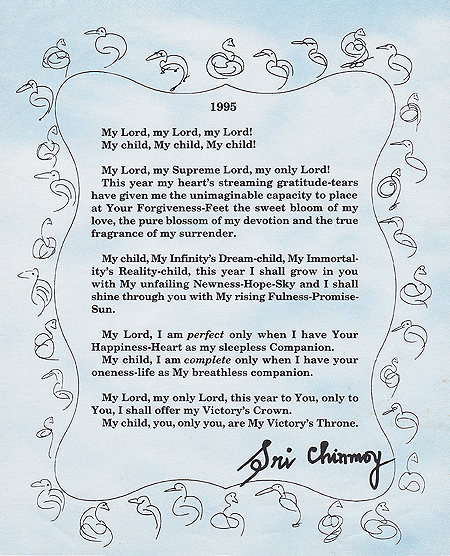 1995
My Lord, my Lord, my Lord!
My child, My child, My child!
My Lord, my Supreme Lord, my only Lord!
This year my heart's streaming gratitude-tears
have given me the unimaginable capacity to place
at Your Forgiveness-Feet the sweet bloom of my
love, the pure blossom of my devotion and the true
fragrance of my surrender.
My child, My Infinity's Dream-child, My Immortal-
ity's Reality-child, this year I shall grow in you
with My unfailing Newness-Hope-Sky and I shall
shine through you with My rising Fulness-Promise-
Sun.
My Lord, I am perfect only when I have Your
Happiness-Heart as my sleepless Companion.
My child, I am complete only when I have your
oneness-life as My breathless companion.
My Lord, my only Lord, this year to You, only to
You, I shall offer my Victory's Crown.
My child, you, only you, are My Victory's Throne.
Sri Chinmoy